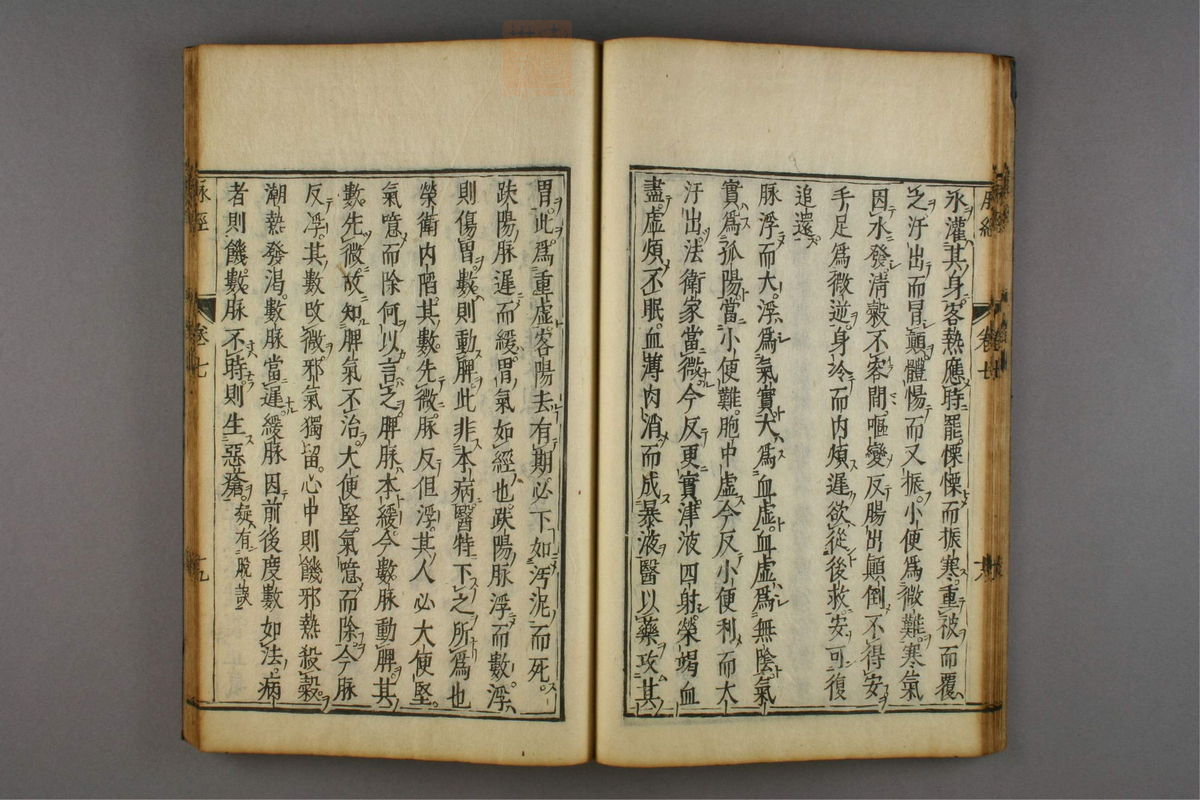 水灌其身客熱應時罷慄慄而振寒重被而覆
之汗出而冒顛體惕而又振小便為微難寒氣
因水發清穀不容間嘔變反腸出顛倒不得安
手足為微逆身冷而内煩遲欲從後救安可復
追還
脉浮而大浮爲氣實大爲血虛血虛爲無陰氣
實爲孤陽當小便難胞中虛今反小便利而大
汗出法衛家當微今反更實津液四射榮竭血
盡虛煩不眠血薄肉消而成暴液醫以藥攻其
脉經
卷七
十八
胃此爲重虛客陽去有期必下如汚泥而死
趺陽脉遲而緩胃氣如經也趺陽脉浮而數浮
則傷胃數則動脾此非本病醫特下之所爲也
榮衛内陷其數先微脉反但浮其人必大便堅
氣噫而除何以言之脾脉本緩今數脉動脾其
數先微故知脾氣不治大便堅氣噫而除今脉
反浮其數改微邪氣獨留心中則饑邪熱殺穀
潮熱發渴數脉當遲緩脉因前後度數如法病
者則饑數脉不時則生惡瘡疑有脫誤
脉經
卷七
十九